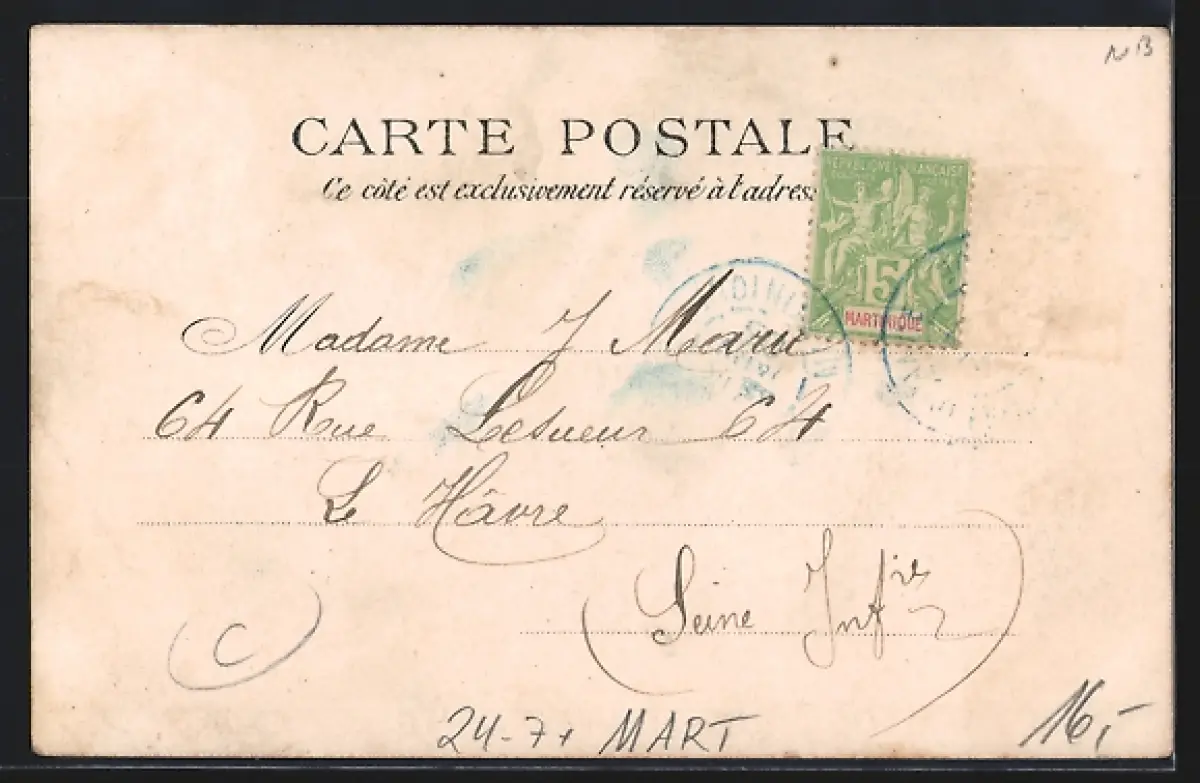 NB
CARTE POSTALE
Ce côté est exclusivement réservé à l'adres
REPUBLIQUE FRANÇAISE
5
MARTINIQUE
Madame J Marie
64 Rue Lesueur 64
Le Hâvre
(Seine Infre)
C
24-7+ MART
16,-